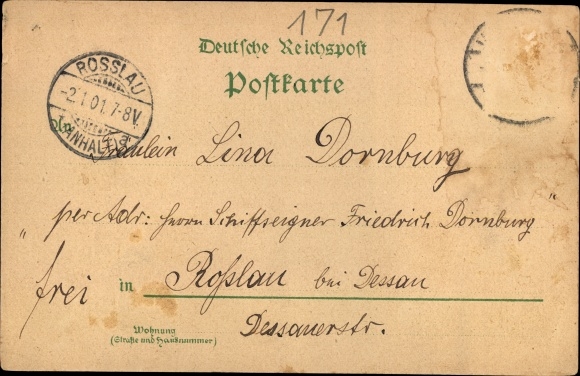 171
Deutsche Reichspost
Postkarte
ROSSLAU
-2.1.01.7-8V.
(ANHALT)
An
Fräulein Lina Dornburg
„per Adr: Herrn Schiffseigner Friedrich Dornburg"
frei in Roßlau bei Dessau
Dessauerstr.
Wohnung
(Straße und Hausnummer)